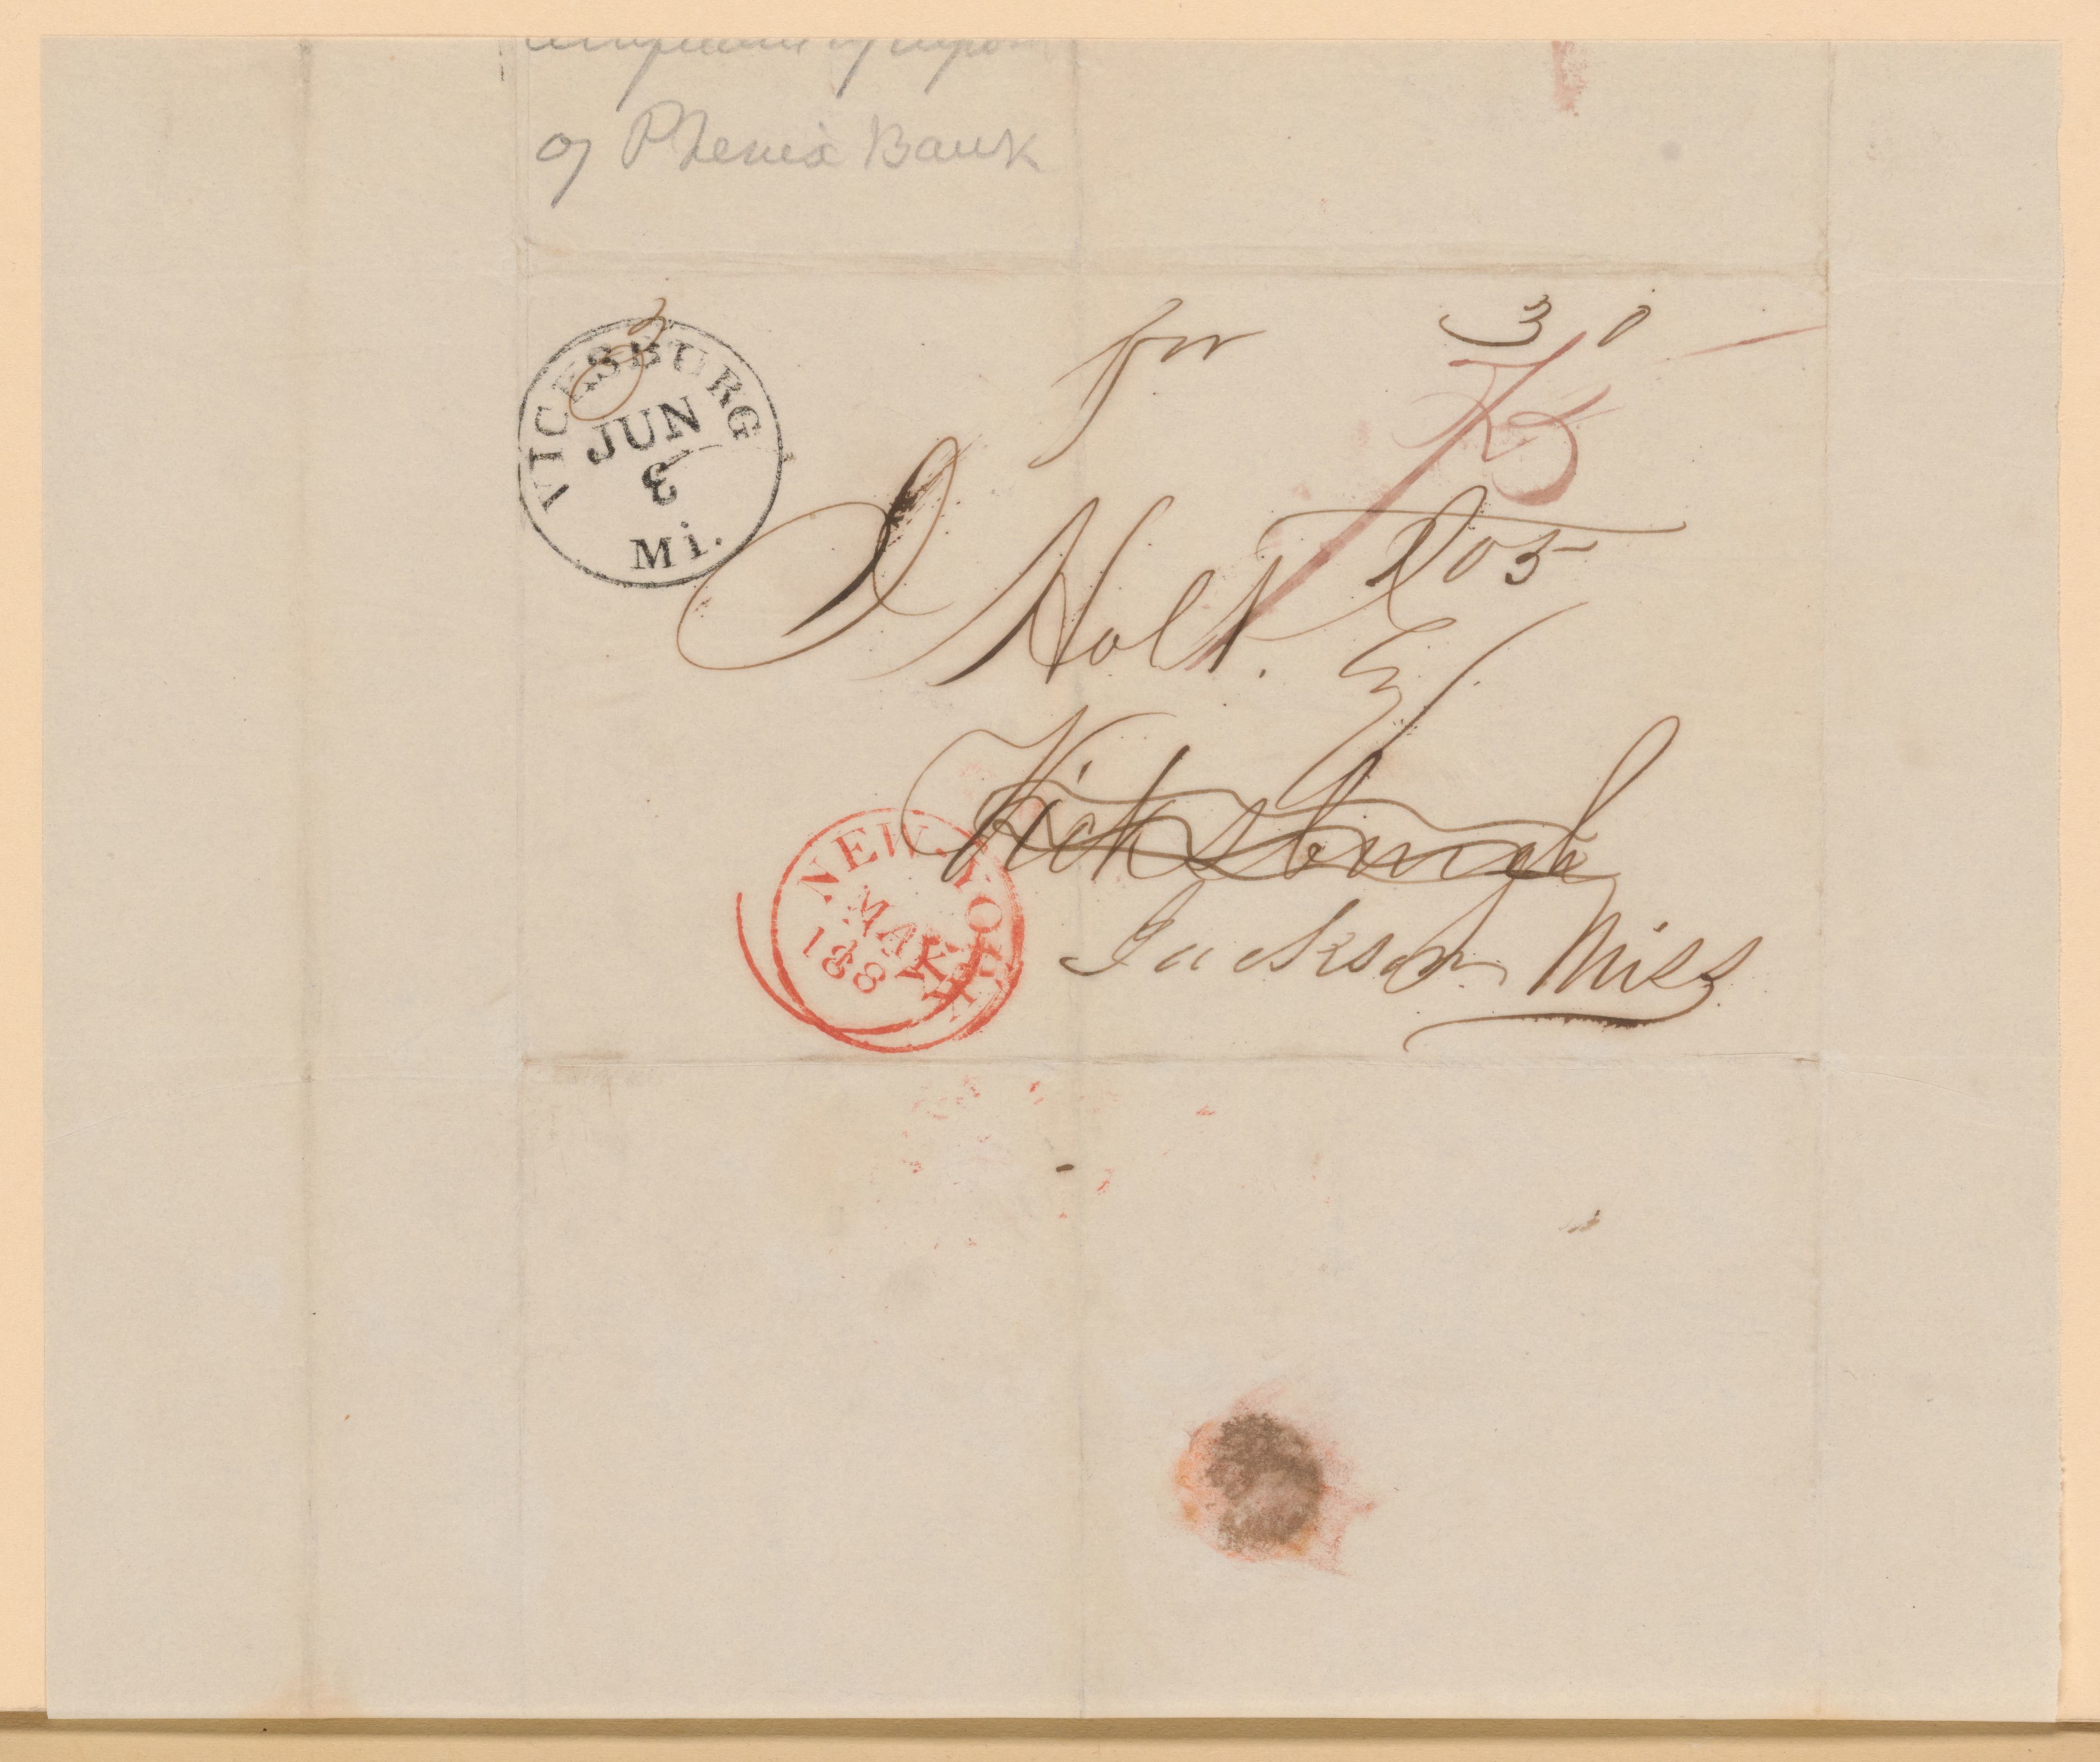 of Phenix Bank
VICKSBURG
JUN
3
Mi.
for
30
J Holt. Esq
Vicksburgh
Jackson Miss
NEW-YORK
MAY